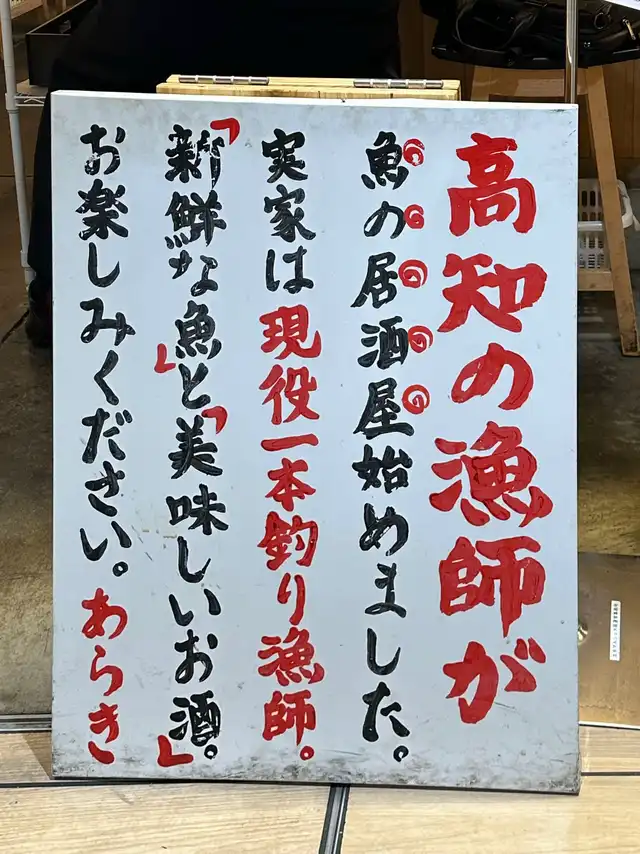 高知の漁師が
魚の居酒屋始めました。
実家は現役一本釣り漁師。
「新鮮な魚」と「美味しいお酒。」
お楽しみください。あらき